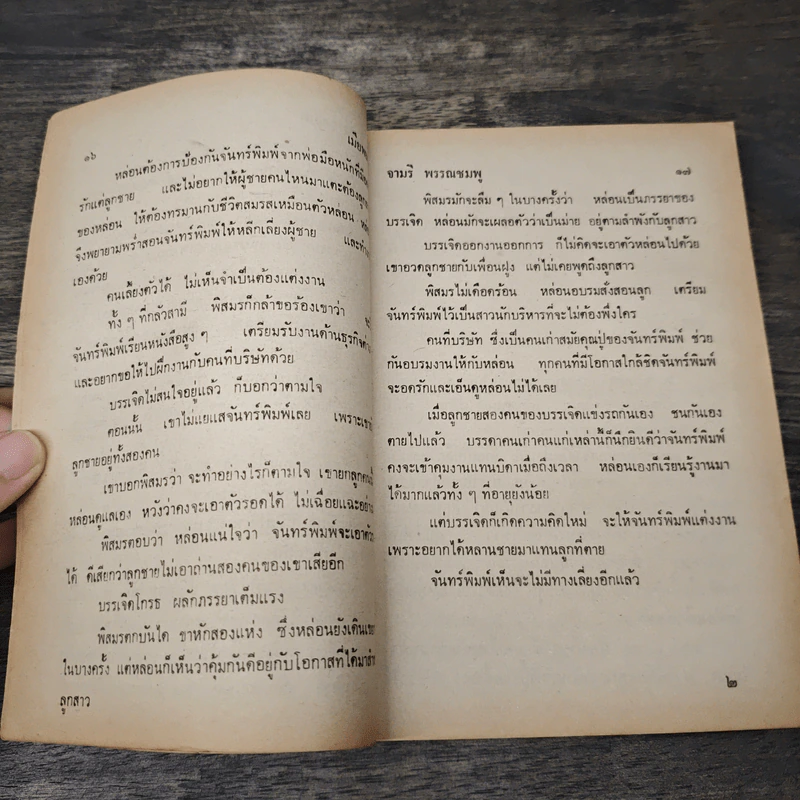 ๑๖
หล่อนต้องการป้องกันจันทร์พิมพ์จากพ่อมือหนักที่
รักแต่ลูกชาย และไม่อยากให้ผู้ชายคนไหนมาแตะต้อง
ของหล่อน ให้ต้องทรมานกับชีวิตสมรสเหมือนตัวหล่อน
จึงพยายามพร่ำสอนจันทร์พิมพ์ให้หลีกเลี่ยงผู้ชาย
เองด้วย
คนเลี้ยงตัวได้ ไม่เห็นจำเป็นต้องแต่งงาน
ทั้ง ๆ ที่กลัวสามี พิสมรก็กล้าขอร้องเขาว่า
จันทร์พิมพ์เรียนหนังสือสูง ๆ เตรียมรับงานด้านธุรกิจ
และอยากขอให้ไปฝึกงานกับคนที่บริษัทด้วย
บรรเจิดไม่สนใจอยู่แล้ว ก็บอกว่าตามใจ
ตอนนั้น เขาไม่แยแสจันทร์พิมพ์เลย เพราะ
ลูกชายอยู่ทั้งสองคน
เขาบอกพิสมรว่า จะทำอย่างไรก็ตามใจ เขายก
หล่อนดูแลเอง หวังว่าคงจะเอาตัวรอดได้ ไม่เฉื่อยแฉะ
พิสมรตอบว่า หล่อนแน่ใจว่า จันทร์พิมพ์จะเอา
ได้ ดีเสียกว่าลูกชายไม่เอาถ่านสองคนของเขาเสียอีก
บรรเจิดโกรธ ผลักภรรยาเต็มแรง
พิสมรตกบันได ขาหักสองแห่ง ซึ่งหล่อนยังเดิน
ในบางครั้ง แต่หล่อนก็เห็นว่าคุ้มกันดีอยู่กับโอกาสที่ได้มา
ลูกสาว
จามรี พรรณชมพู
๑๗
พิสมรมักจะลืม ๆ ในบางครั้งว่า หล่อนเป็นภรรยาของ
บรรเจิด หล่อนมักจะเผลอตัวว่าเป็นม่าย อยู่ตามลำพังกับลูกสาว
บรรเจิดออกงานออกการ ก็ไม่คิดจะเอาตัวหล่อนไปด้วย
เขาอวดลูกชายกับเพื่อนฝูง แต่ไม่เคยพูดถึงลูกสาว
พิสมรไม่เดือดร้อน หล่อนอบรมสั่งสอนลูก เตรียม
จันทร์พิมพ์ไว้เป็นสาวนักบริหารที่จะไม่ต้องพึ่งใคร
คนที่บริษัท ซึ่งเป็นคนเก่าสมัยคุณปู่ของจันทร์พิมพ์ ช่วย
กันอบรมงานให้กับหล่อน ทุกคนที่มีโอกาสใกล้ชิดจันทร์พิมพ์
จะอดรักและเอ็นดูหล่อนไม่ได้เลย
เมื่อลูกชายสองคนของบรรเจิดแข่งรถกันเอง ชนกันเอง
ตายไปแล้ว บรรดาคนเก่าคนแก่เหล่านี้ก็นึกยินดีว่าจันทร์พิมพ์
คงจะเข้าคุมงานแทนบิดาเมื่อถึงเวลา หล่อนเองก็เรียนรู้งานมา
ได้มากแล้วทั้ง ๆ ที่อายุยังน้อย
แต่บรรเจิดก็เกิดความคิดใหม่ จะให้จันทร์พิมพ์แต่งงาน
เพราะอยากได้หลานชายมาแทนลูกที่ตาย
จันทร์พิมพ์เห็นจะไม่มีทางเลี่ยงอีกแล้ว
๒